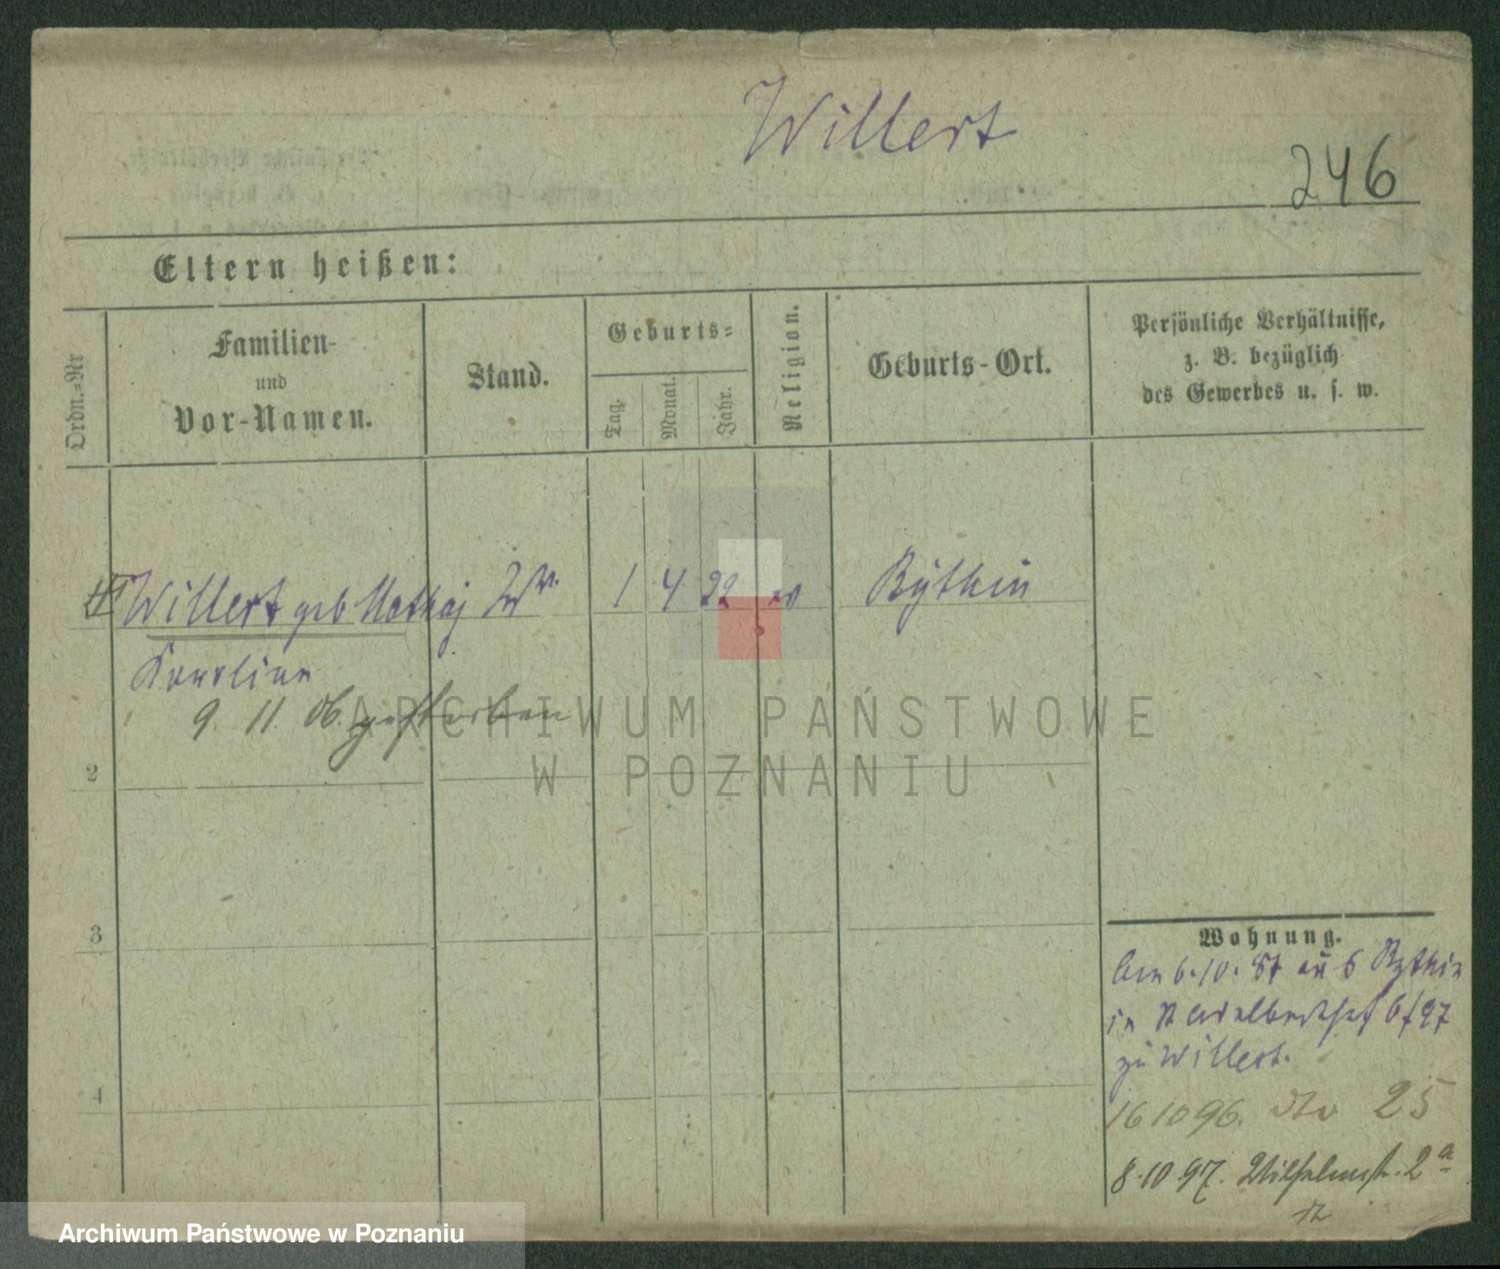 Willert
246
Eltern heißen:
Ordn.=Nr
Familien-
und
Vor-Namen.
Stand.
Geburts=
Tag.
Monat.
Jahr.
Religion.
Geburts-Ort.
Persönliche Verhältnisse,
z. B. bezüglich
des Gewerbes u. s. w.
Willert geb Mathaj Ww. 1 4 22 ev Rÿthin
Karoline
9. 11. 06. gestorben
2
3
4
Wohnung.
Am 6.10.87 aus Rythin
in St Adalberthof 6/97
zu Willert.
16 10 96. dto 25
8.10.97. Wilhelmstr. 2a
ARCHIWUM PAŃSTWOWE
W POZNANIU
Archiwum Państwowe w Poznaniu